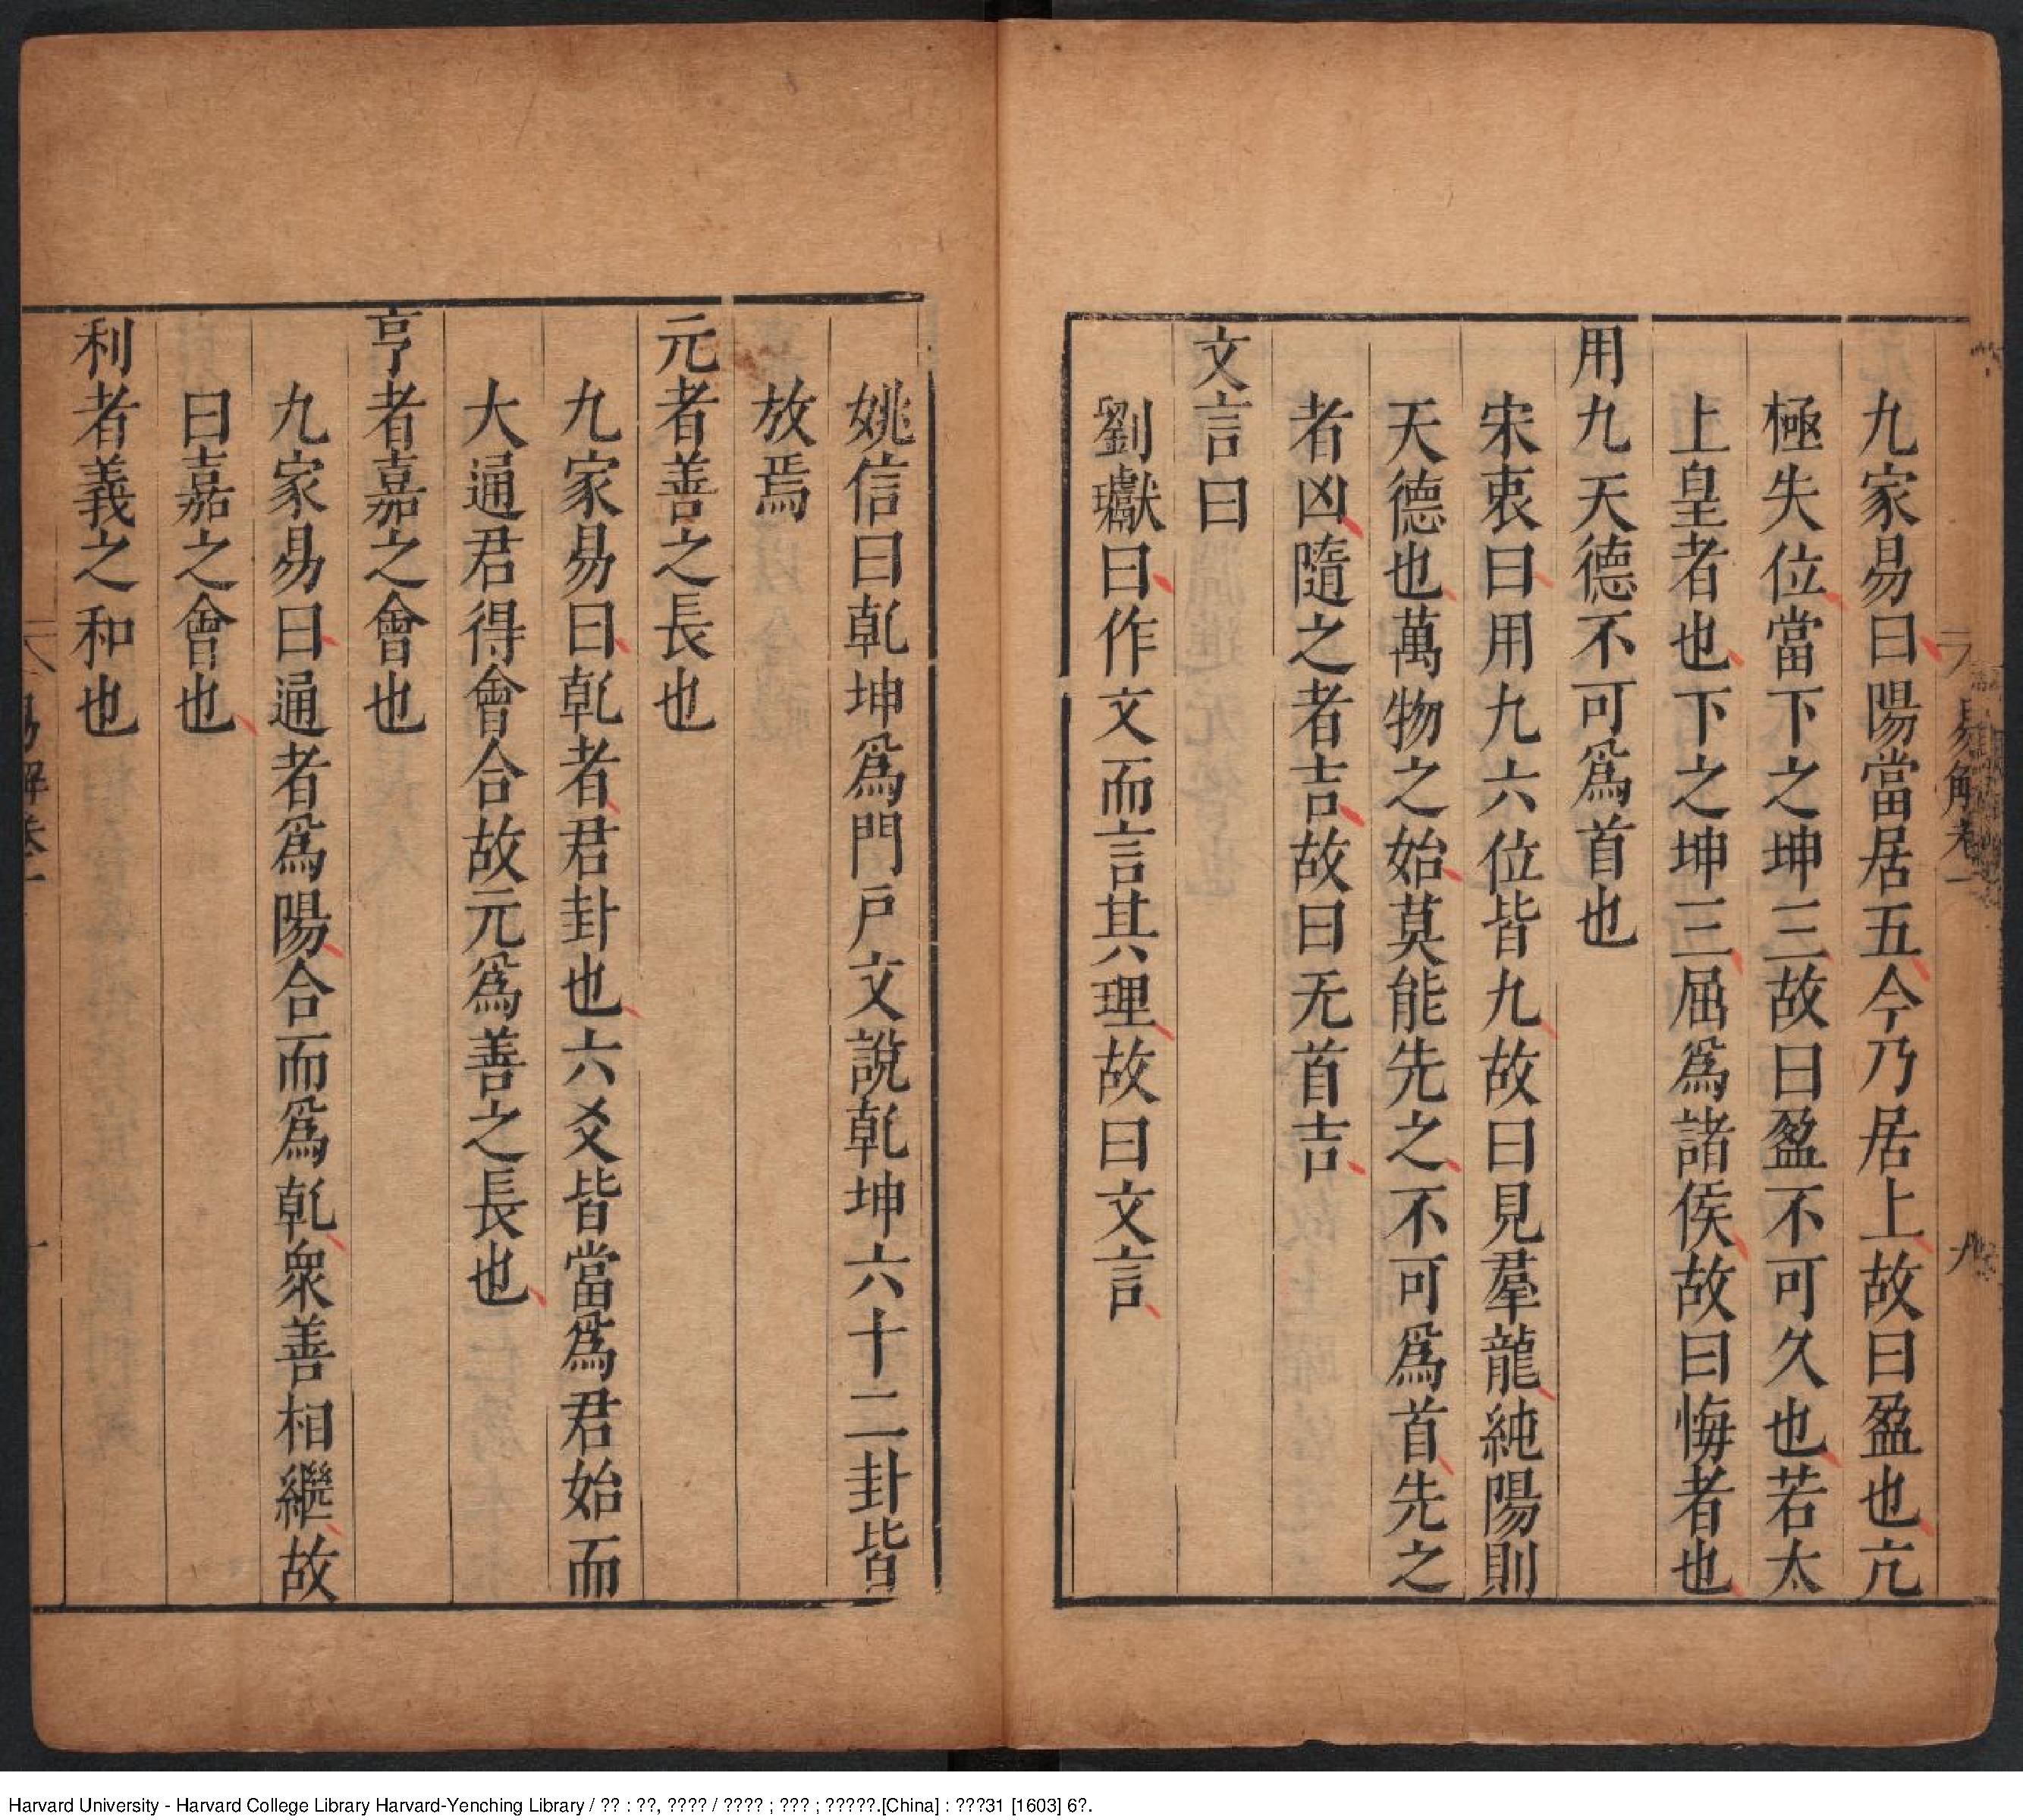 易解卷一
九
九家易曰陽當居五今乃居上故曰盈也亢
極失位當下之坤三故曰盈不可久也若太
上皇者也下之坤三屈爲諸侯故曰悔者也
用九天德不可爲首也
宋衷曰用九六位皆九故曰見羣龍純陽則
天德也萬物之始莫能先之不可爲首先之
者凶隨之者吉故曰无首吉
文言曰
劉瓛曰作文而言其理故曰文言
姚信曰乾坤爲門戶文說乾坤六十二卦皆
放焉
元者善之長也
九家易曰乾者君卦也六爻皆當爲君始而
大通君得會合故元爲善之長也
亨者嘉之會也
九家易曰通者爲陽合而爲乾衆善相繼故
曰嘉之會也
利者義之和也
易解卷一
Harvard University - Harvard College Library Harvard-Yenching Library / ?? : ??, ???? / ???? ; ??? ; ?????.[China] : ???31 [1603] 6?.